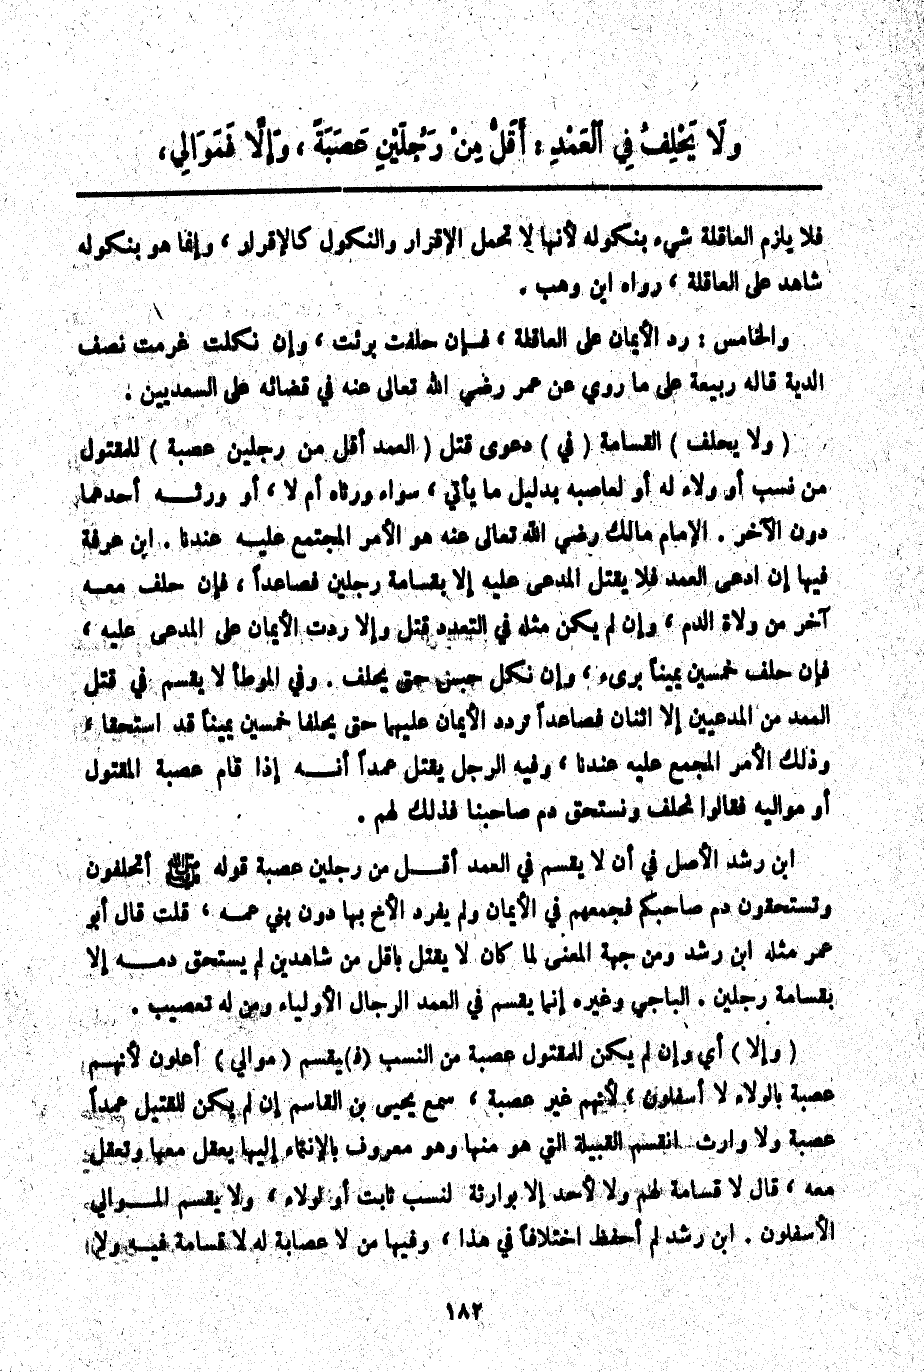 ولَا يَحْلِفُ فِي ٱلْعَمْدِ : أَقَلُّ مِنْ رَجُلَيْنِ عَصَبَةً ، وَإِلَّا فَمَوَالِي،
فلا يلزم العاقلة شيء بنكوله لأنها لا تحمل الإقرار والنكول كالإقرار ، وإنما هو بنكوله
شاهد على العاقلة ، رواه ابن وهب .
والخامس : رد الأيمان على العاقلة ، فإن حلفت برئت ، وإن نكلت غرمت نصف
الدية قاله ربيعة على ما روي عن عمر رضي الله تعالى عنه في قضائه على السعديين .
( ولا يحلف ) القسامة ( في ) دعوى قتل ( العمد أقل من رجلين عصبة ) للمقتول
من نسب أو ولاء له أو لعاصبه بدليل ما يأتي ، سواء ورثاه أم لا ، أو ورثه أحدهما
دون الآخر . الإمام مالك رضي الله تعالى عنه هو الأمر المجتمع عليه عندنا . ابن عرفة
فيها إن ادعى العمد فلا يقتل المدعى عليه إلا بقسامة رجلين فصاعداً ، فإن حلف معه
آخر من ولاة الدم ، وإن لم يكن مثله في التعدد قتل وإلا ردت الأيمان على المدعى عليه ،
فإن حلف خمسين يميناً برىء ، وإن نكل حبس حتى يحلف . وفي الموطأ لا يقسم في قتل
العمد من المدعيين إلا اثنان فصاعداً تردد الأيمان عليهما حتى يحلفا خمسين يميناً قد استحقا ،
وذلك الأمر المجمع عليه عندنا ، وفيه الرجل يقتل عمداً أنه إذا قام عصبة المقتول
أو مواليه فقالوا نحلف ونستحق دم صاحبنا فذلك لهم .
ابن رشد الأصل في أن لا يقسم في العمد أقل من رجلين عصبة قوله ﷺ أتحلفون
وتستحقون دم صاحبكم فجمعهم في الأيمان ولم يفرد الأخ بها دون بني عمه ، قلت قال أبو
عمر مثله ابن رشد ومن جهة المعنى لما كان لا يقتل بأقل من شاهدين لم يستحق دمه إلا
بقسامة رجلين . الباجي وغيره إنما يقسم في العمد الرجال الأولياء ومن له تعصيب .
( وإلا ) أي وإن لم يكن للمقتول عصبة من النسب (فـ)يقسم ( موالي ) أعلون لأنهم
عصبة بالولاء لا أسفلون ، لأنهم غير عصبة ، سمع يحيى بن القاسم إن لم يكن للقتيل عمداً
عصبة ولا وارث انقسم القبيلة التي هو منها وهو معروف بالإنتماء إليها يعقل معها وتعقل
معه ، قال لا قسامة لهم ولا لأحد إلا بوارثة لنسب ثابت أو لولاء ، ولا يقسم الموالي
الأسفلون . ابن رشد لم أحفظ اختلافاً في هذا ، وفيها من لا عصابة له لا قسامة فيه ولا
١٨٢